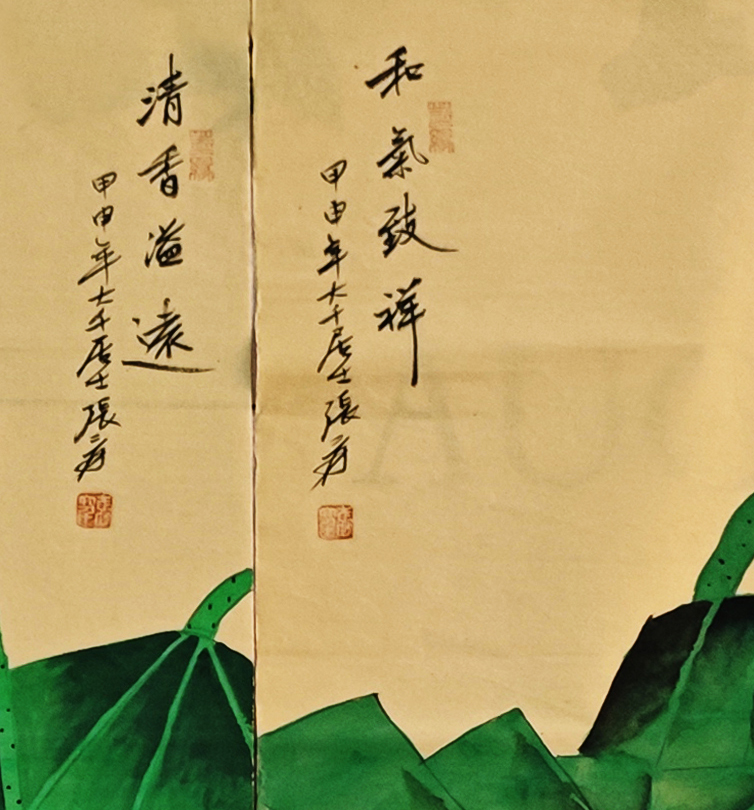 和氣致祥
甲申年大千居士張爰
清香溢遠
甲申年大千居士張爰